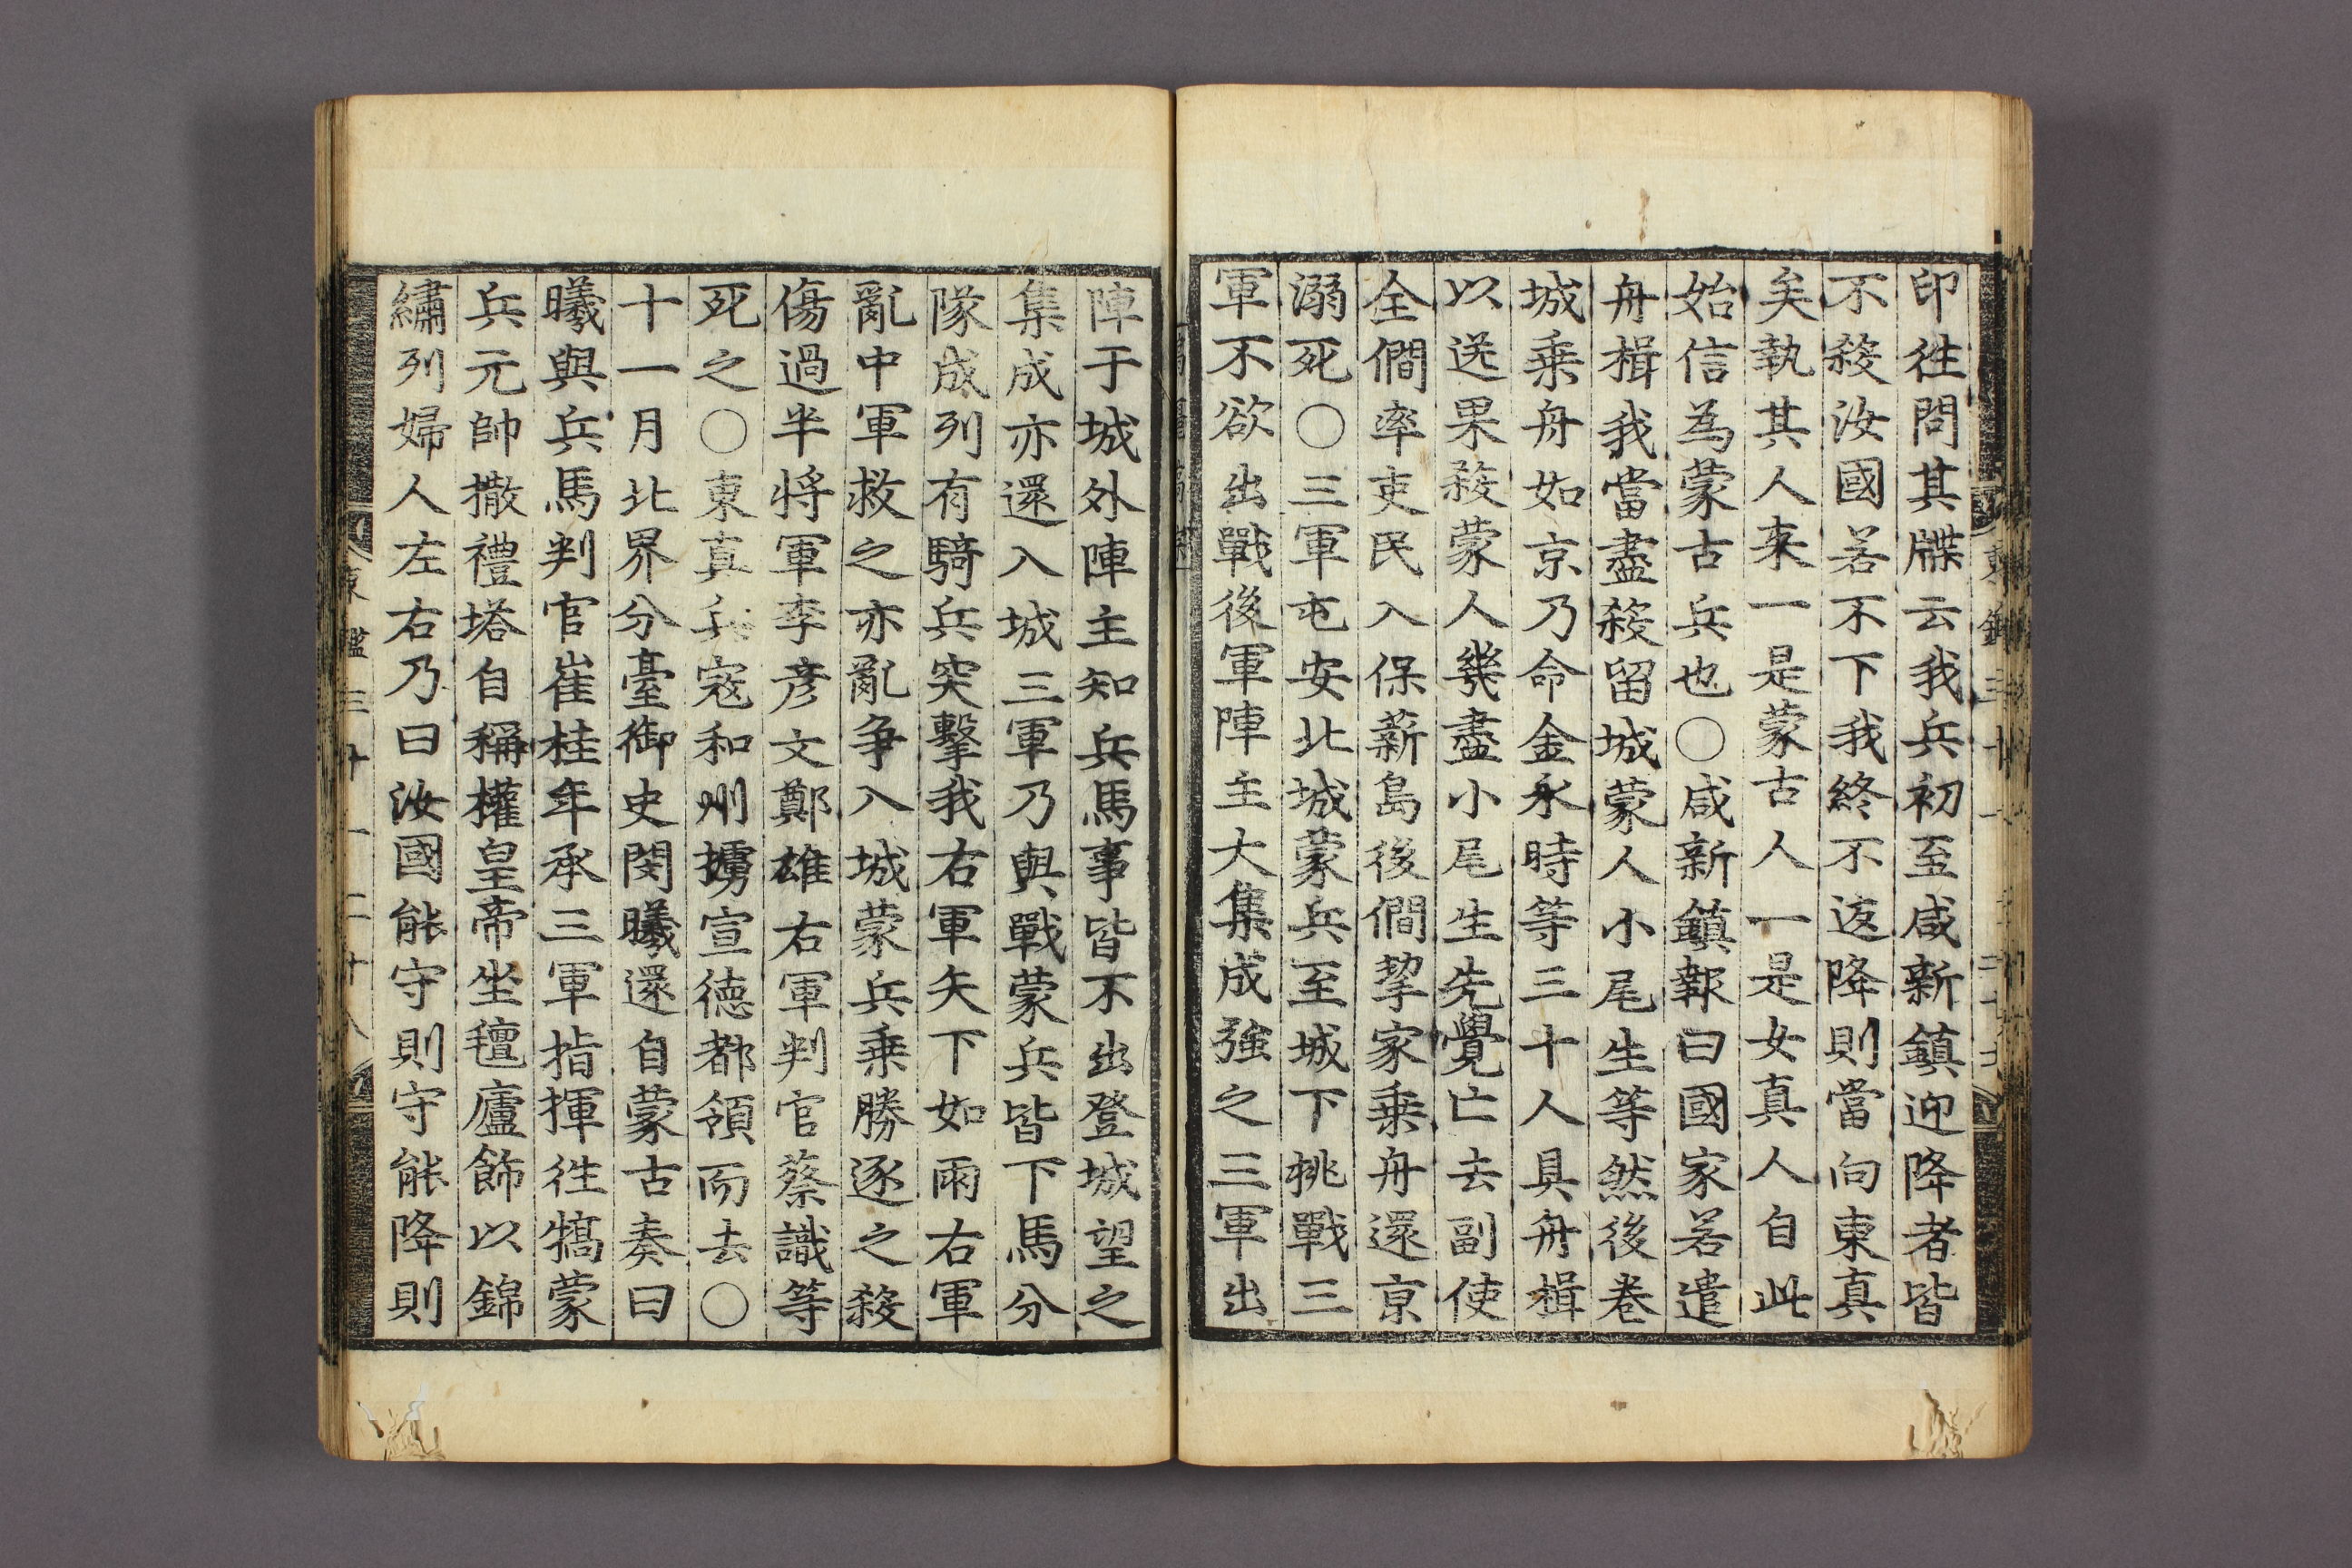 印徃問其牒云我兵初至咸新鎮迎降者皆
不殺汝國若不下我終不返降則當向東真
矣執其人来一是蒙古人一是女真人自此
始信為蒙古兵也○咸新鎮報曰國家若遣
舟楫我當盡殺留城蒙人小尾生等然後卷
城乗舟如京乃命金永時等三十人具舟楫
以送果殺蒙人幾盡小尾生先覺亡去副使
全僩率吏民入保薪島後僩挈家乗舟還京
溺死○三軍屯安北城蒙兵至城下挑戰三
軍不欲出戰後軍陣主大集成強之三軍出
陣于城外陣主知兵馬事皆不出登城望之
集成亦還入城三軍乃與戰蒙兵皆下馬分
隊成列有騎兵突擊我右軍矢下如雨右軍
亂中軍救之亦亂争入城蒙兵乗勝逐之殺
傷過半将軍李彦文鄭雄右軍判官蔡識等
死之○東真兵寇和州擄宣徳都領而去○
十一月北界分臺御史閔曦還自蒙古奏曰
曦與兵馬判官崔桂年承三軍指揮徃犒蒙
兵元帥撒禮塔自稱權皇帝坐氊廬飾以錦
繡列婦人左右乃曰汝國能守則守能降則
鑑三十一 二十八